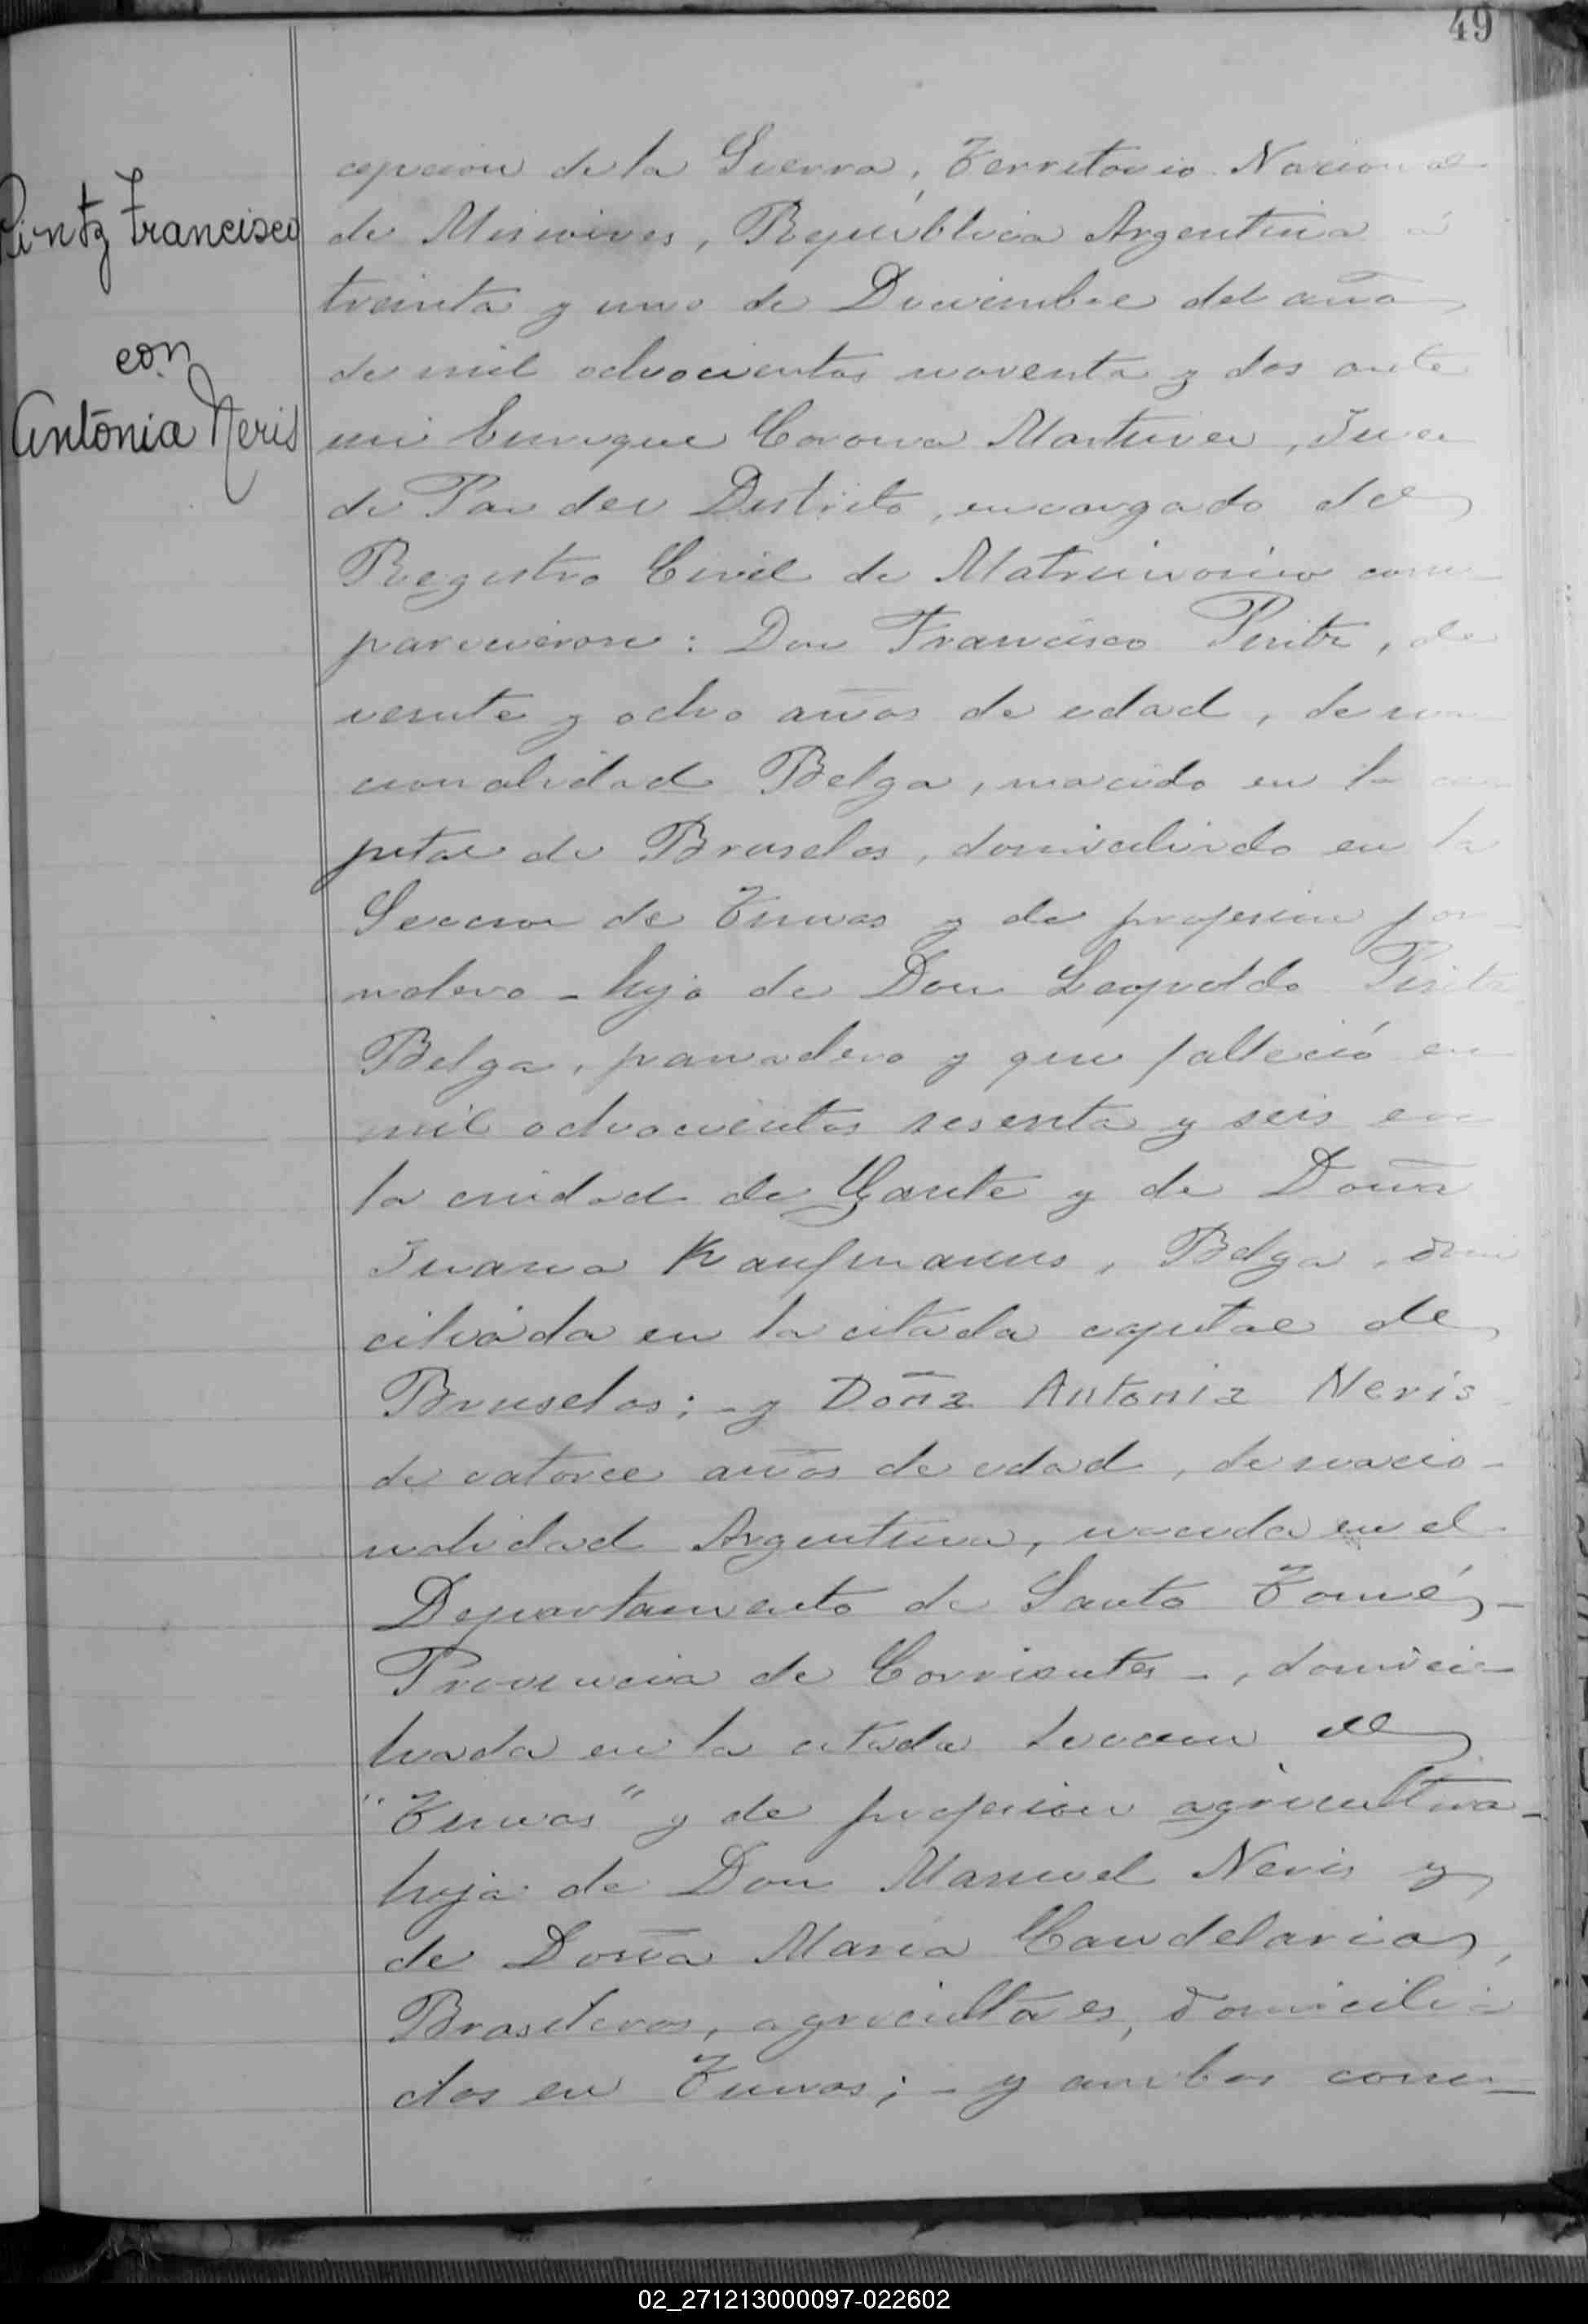 49
Pintz Francisco
con
Antōnia Neris
cepcion de la Sierra, Territorio Nacional
de Misiones, República Argentina á
treinta y uno de Diciembre del año
de mil ochocientos noventa y dos ante
mi Enrique Corona Martinez, Juez
de Paz del Distrito, encargado del
Registro Civil de Matrimonio com-
parecieron: Don Francisco Pintz, de
veinte y ocho años de edad, de na-
cionalidad Belga, nacido en la ca-
pital de Bruselas, domiciliado en la
Seccion de Tunas y de profesion jor-
nalero - hijo de Don Leopoldo Pintz
Belga, panadero y que falleció en
mil ochocientos sesenta y seis en
la ciudad de Gante y de Doña
Juana Kaufmanns, Belga, domi
ciliada en la citada capital de
Bruselas; - y Doña Antonia Neris
de catorce años de edad, de nacio-
nalidad Argentina, nacida en el
Departamento de Santo Tomé, -
Provincia de Corrientes -, domici-
liada en la citada Seccion de
"Tunas" y de profesion agricultora -
hija de Don Manuel Neris y
de Doña Maria Candelaria,
Brasileros, agricultores, domicilia
dos en Tunas; - y ambos com-
02_271213000097-022602